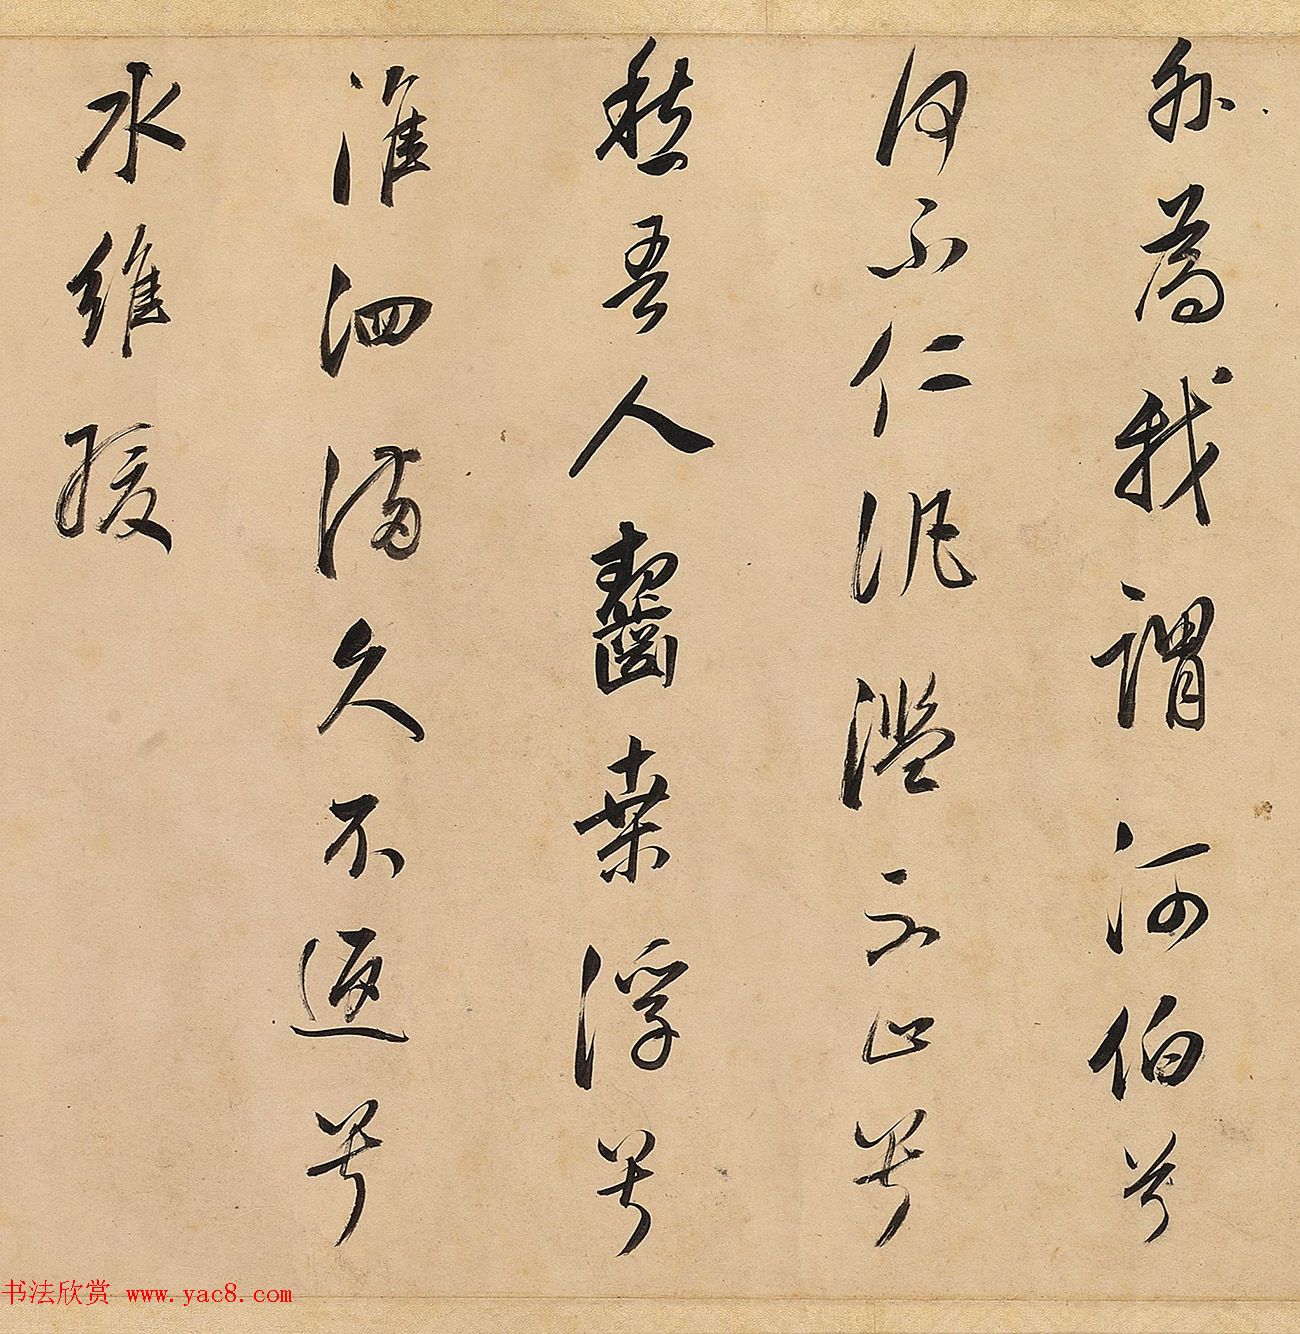 外為我謂河伯兮
何不仁汎濫不止兮
愁吾人齧桒浮兮
淮泗滿久不返兮
水維緩
书法欣赏 www.yac8.com